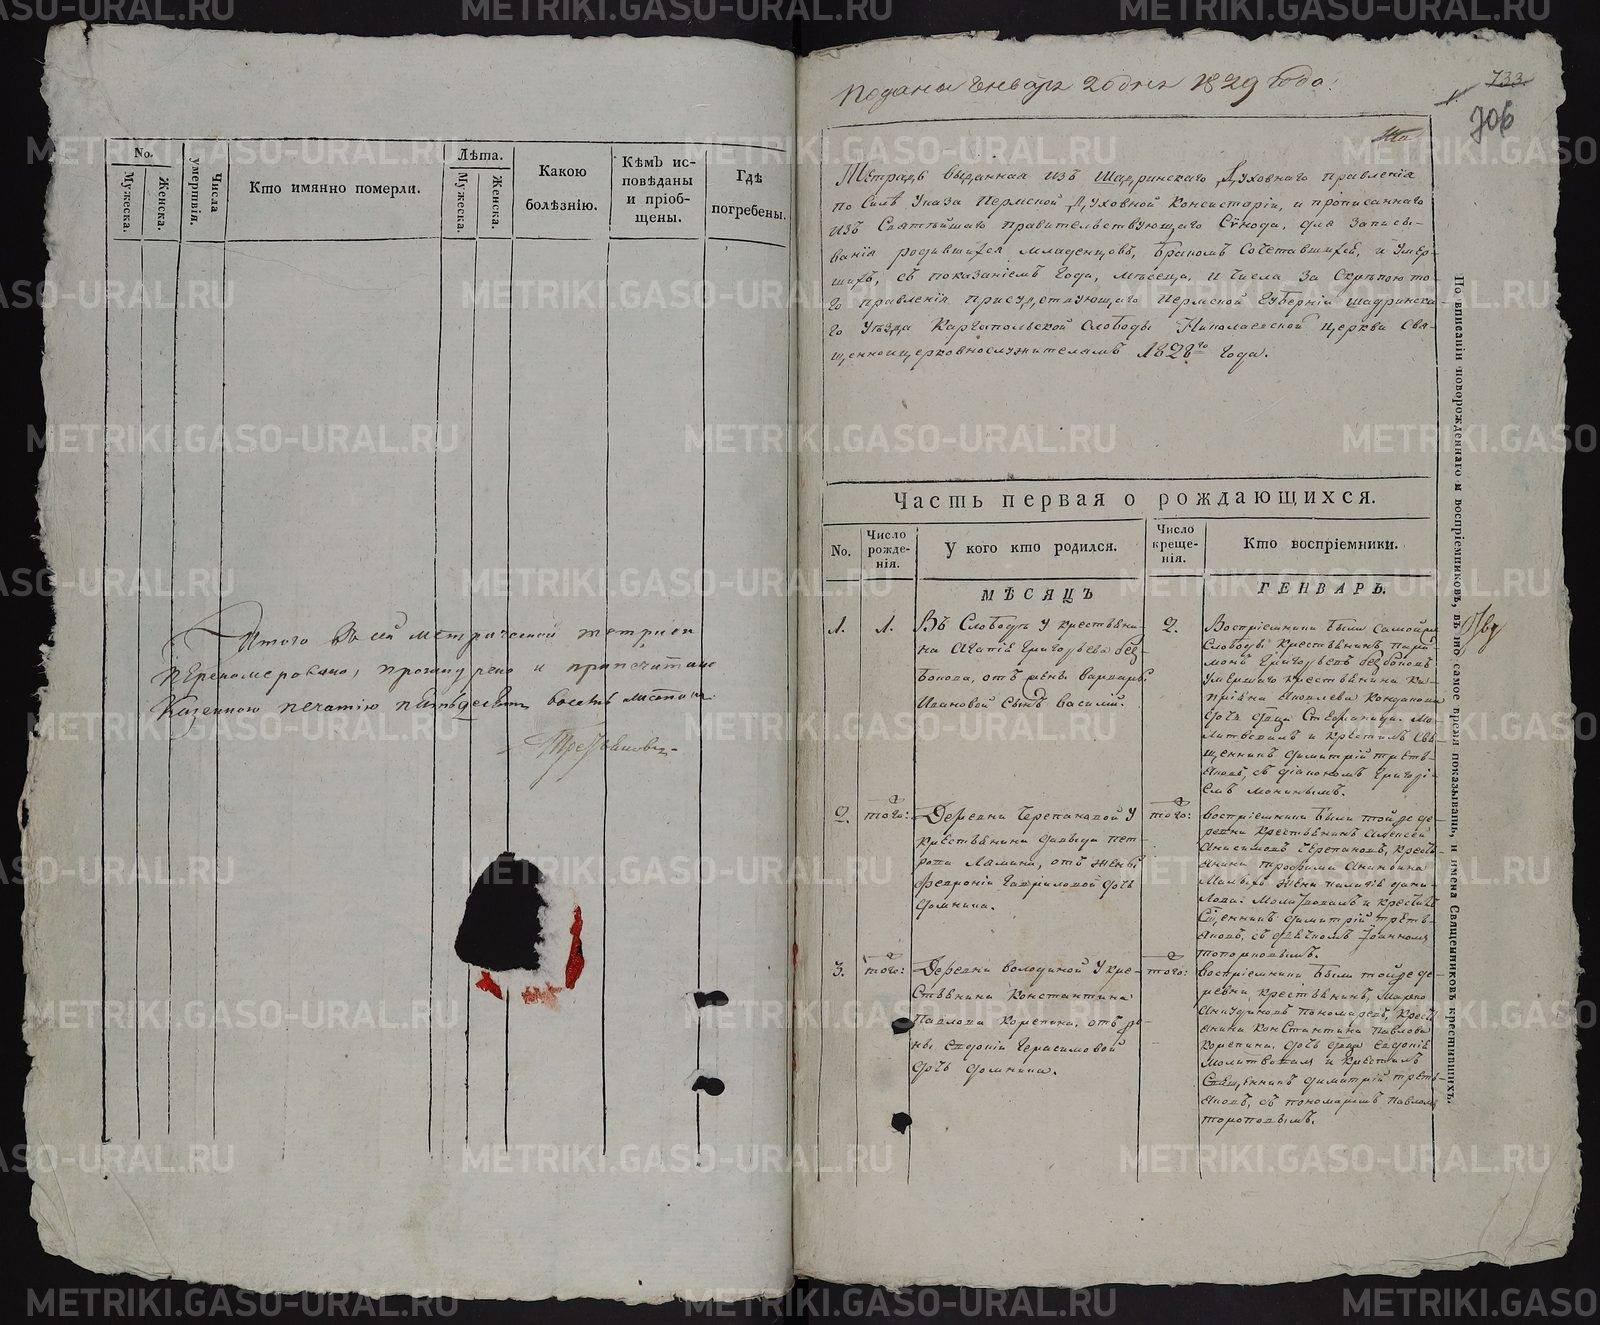 No.
Мужеска.
Женска.
Числа
умертвія.
Кто имянно померли.
Лѣта.
Мужеска.
Женска.
Какою
болѣзнію.
Кѣмъ ис-
повѣданы
и пріоб-
щены.
Гдѣ
погребены.
Итого въ сей метрической тетради
перенумеровано, прошнурено и припечатано
Казенною печатію пятьдесятъ листовъ
Поданы Генваря 20 дня 1829 года.
733
706
Тетрадь выданная изъ Шадринскаго Духовнаго правленія
по Силѣ Указа Пермской Духовной Консисторіи, и прописаннаго
изъ Святѣйшаго правительствующаго Сѵнода, для записы-
ванія родившихся младенцовъ, бракомъ сочетавшихся, и умер-
шихъ, съ показаніемъ года, мѣсяца, и числа за скрѣпою то-
го правленія присудствующаго Пермской Губерніи Шадринска-
го Уѣзда Каргапольской Слободы Николаевской церкви Свя-
щенноцерковнослужителямъ 1828го года.
Часть первая о рождающихся.
No.
Число
рожде-
нія.
У кого кто родился.
Число
креще-
нія.
Кто воспріемники.
МѢСЯЦЪ
ГЕНВАРЬ.
1.
1.
Въ Слободѣ у крестьяни-
на Агапіа Григорьева Без-
бонова, отъ жены Варвары
Ивановой Сынъ Василій.
2.
Воспріемники были самой
Слободы крестьянинъ
Григорьевъ Безбоновъ
умершаго крестьянина Ки-
пріяна Яковлева
дочь двца Стефанида. Мо-
литвовалъ и Крестилъ Свя-
щенникъ Димитрій Треть-
яковъ, съ діакономъ Григорі-
емъ
2.
того:
Деревни Черепановой у
крестьянина Давыда Пет-
рова Лямина, отъ жены
Февроніи Гавриловой дочь
Домника.
того:
воспріемники были той же де-
ревни крестьянинъ Алексей
Анисимовъ Черепановъ, кресть-
янина Трофима
жены дани-
лова. Молитвовалъ и крестилъ
Священникъ Димитрій Треть-
яковъ, съ Іоанномъ
Топорковымъ.
3.
того:
Деревни Володиной у кре-
стьянина Константина
Павлова Корепина, отъ же-
ны Евдокіи Герасимовой
дочь Домника.
того:
воспріемники были той же де-
ревни, крестьянинъ, Марко
Пономаревъ, крестъ-
янина Константина Павлова
Корепина, дочь двца Евдокія
Молитвовалъ и Крестилъ
Священникъ Димитрій Треть-
яковъ, съ пономаремъ Павломъ
Тороповымъ.
По вписаніи новорожденнаго и воспріемниковъ, въ то самое время показывать, и имена Священниковъ крестившихъ.
METRIKI.GASO-URAL.RU